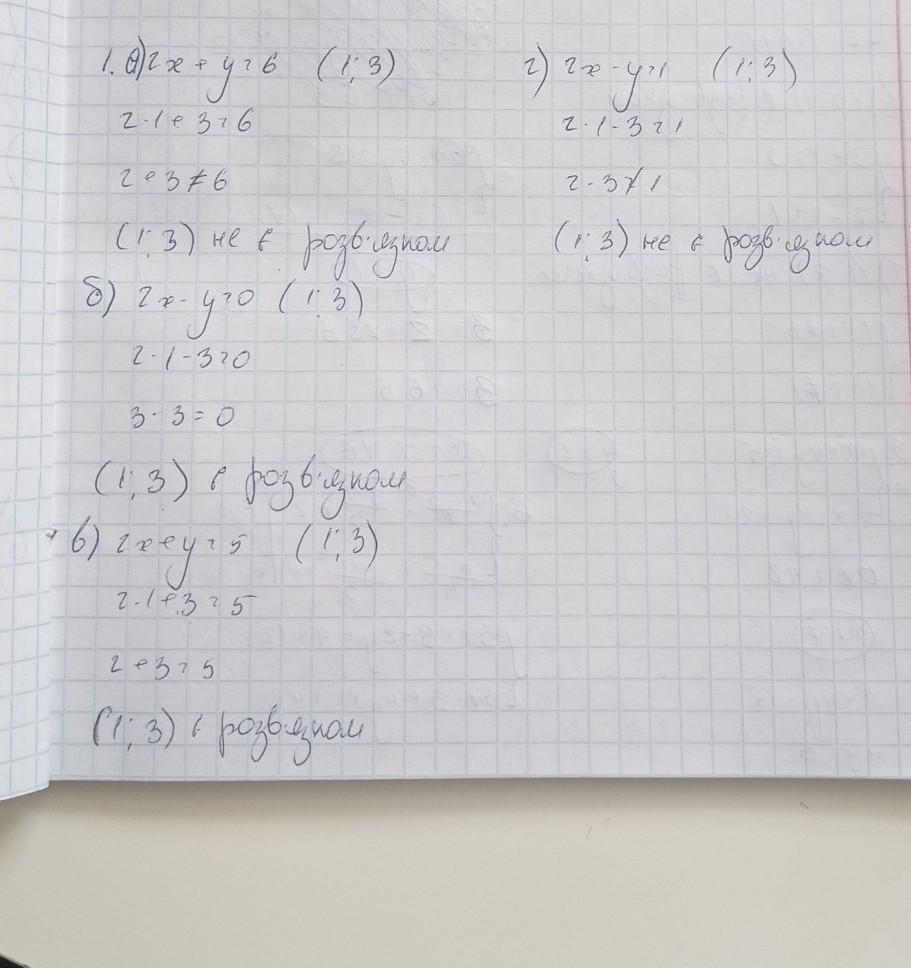 1. а) 2x + y = 6 (1; 3)
2·1 + 3 = 6
2 + 3 ≠ 6
(1; 3) не є розв'язком
б) 2x - y = 0 (1; 3)
2·1 - 3 = 0
3 - 3 = 0
(1; 3) є розв'язком
в) 2x + y = 5 (1; 3)
2·1 + 3 = 5
2 + 3 = 5
(1; 3) є розв'язком
г) 2x - y = 1 (1; 3)
2·1 - 3 = 1
2 - 3 ≠ 1
(1; 3) не є розв'язком